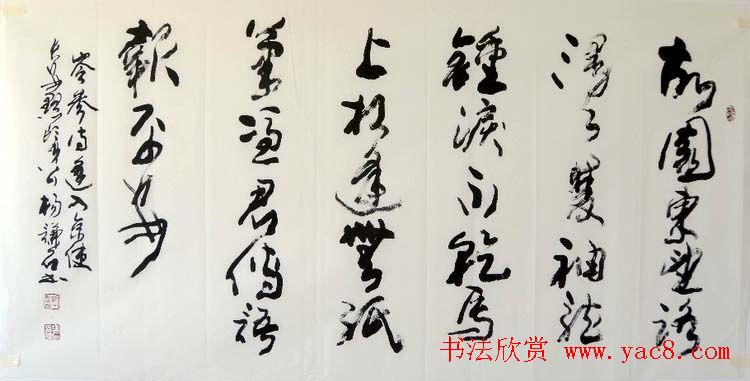 故園東望路
漫々雙袖龍
鍾淚不乾馬
上相逢無紙
筆憑君傳語
報平安
岑參詩逢入京使
楊謙
书法欣赏 www.yac8.com